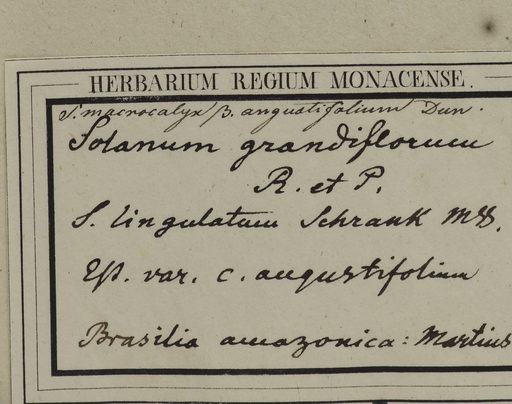 HERBARIUM REGIUM MONACENSE.
S. macrocalyx β. angustifolium Dun.
Solanum grandiflorum
R. et P.
S. lingulatum Schrank MSS.
Est. var. c. angustifolium
Brasilia amazonica: Martius